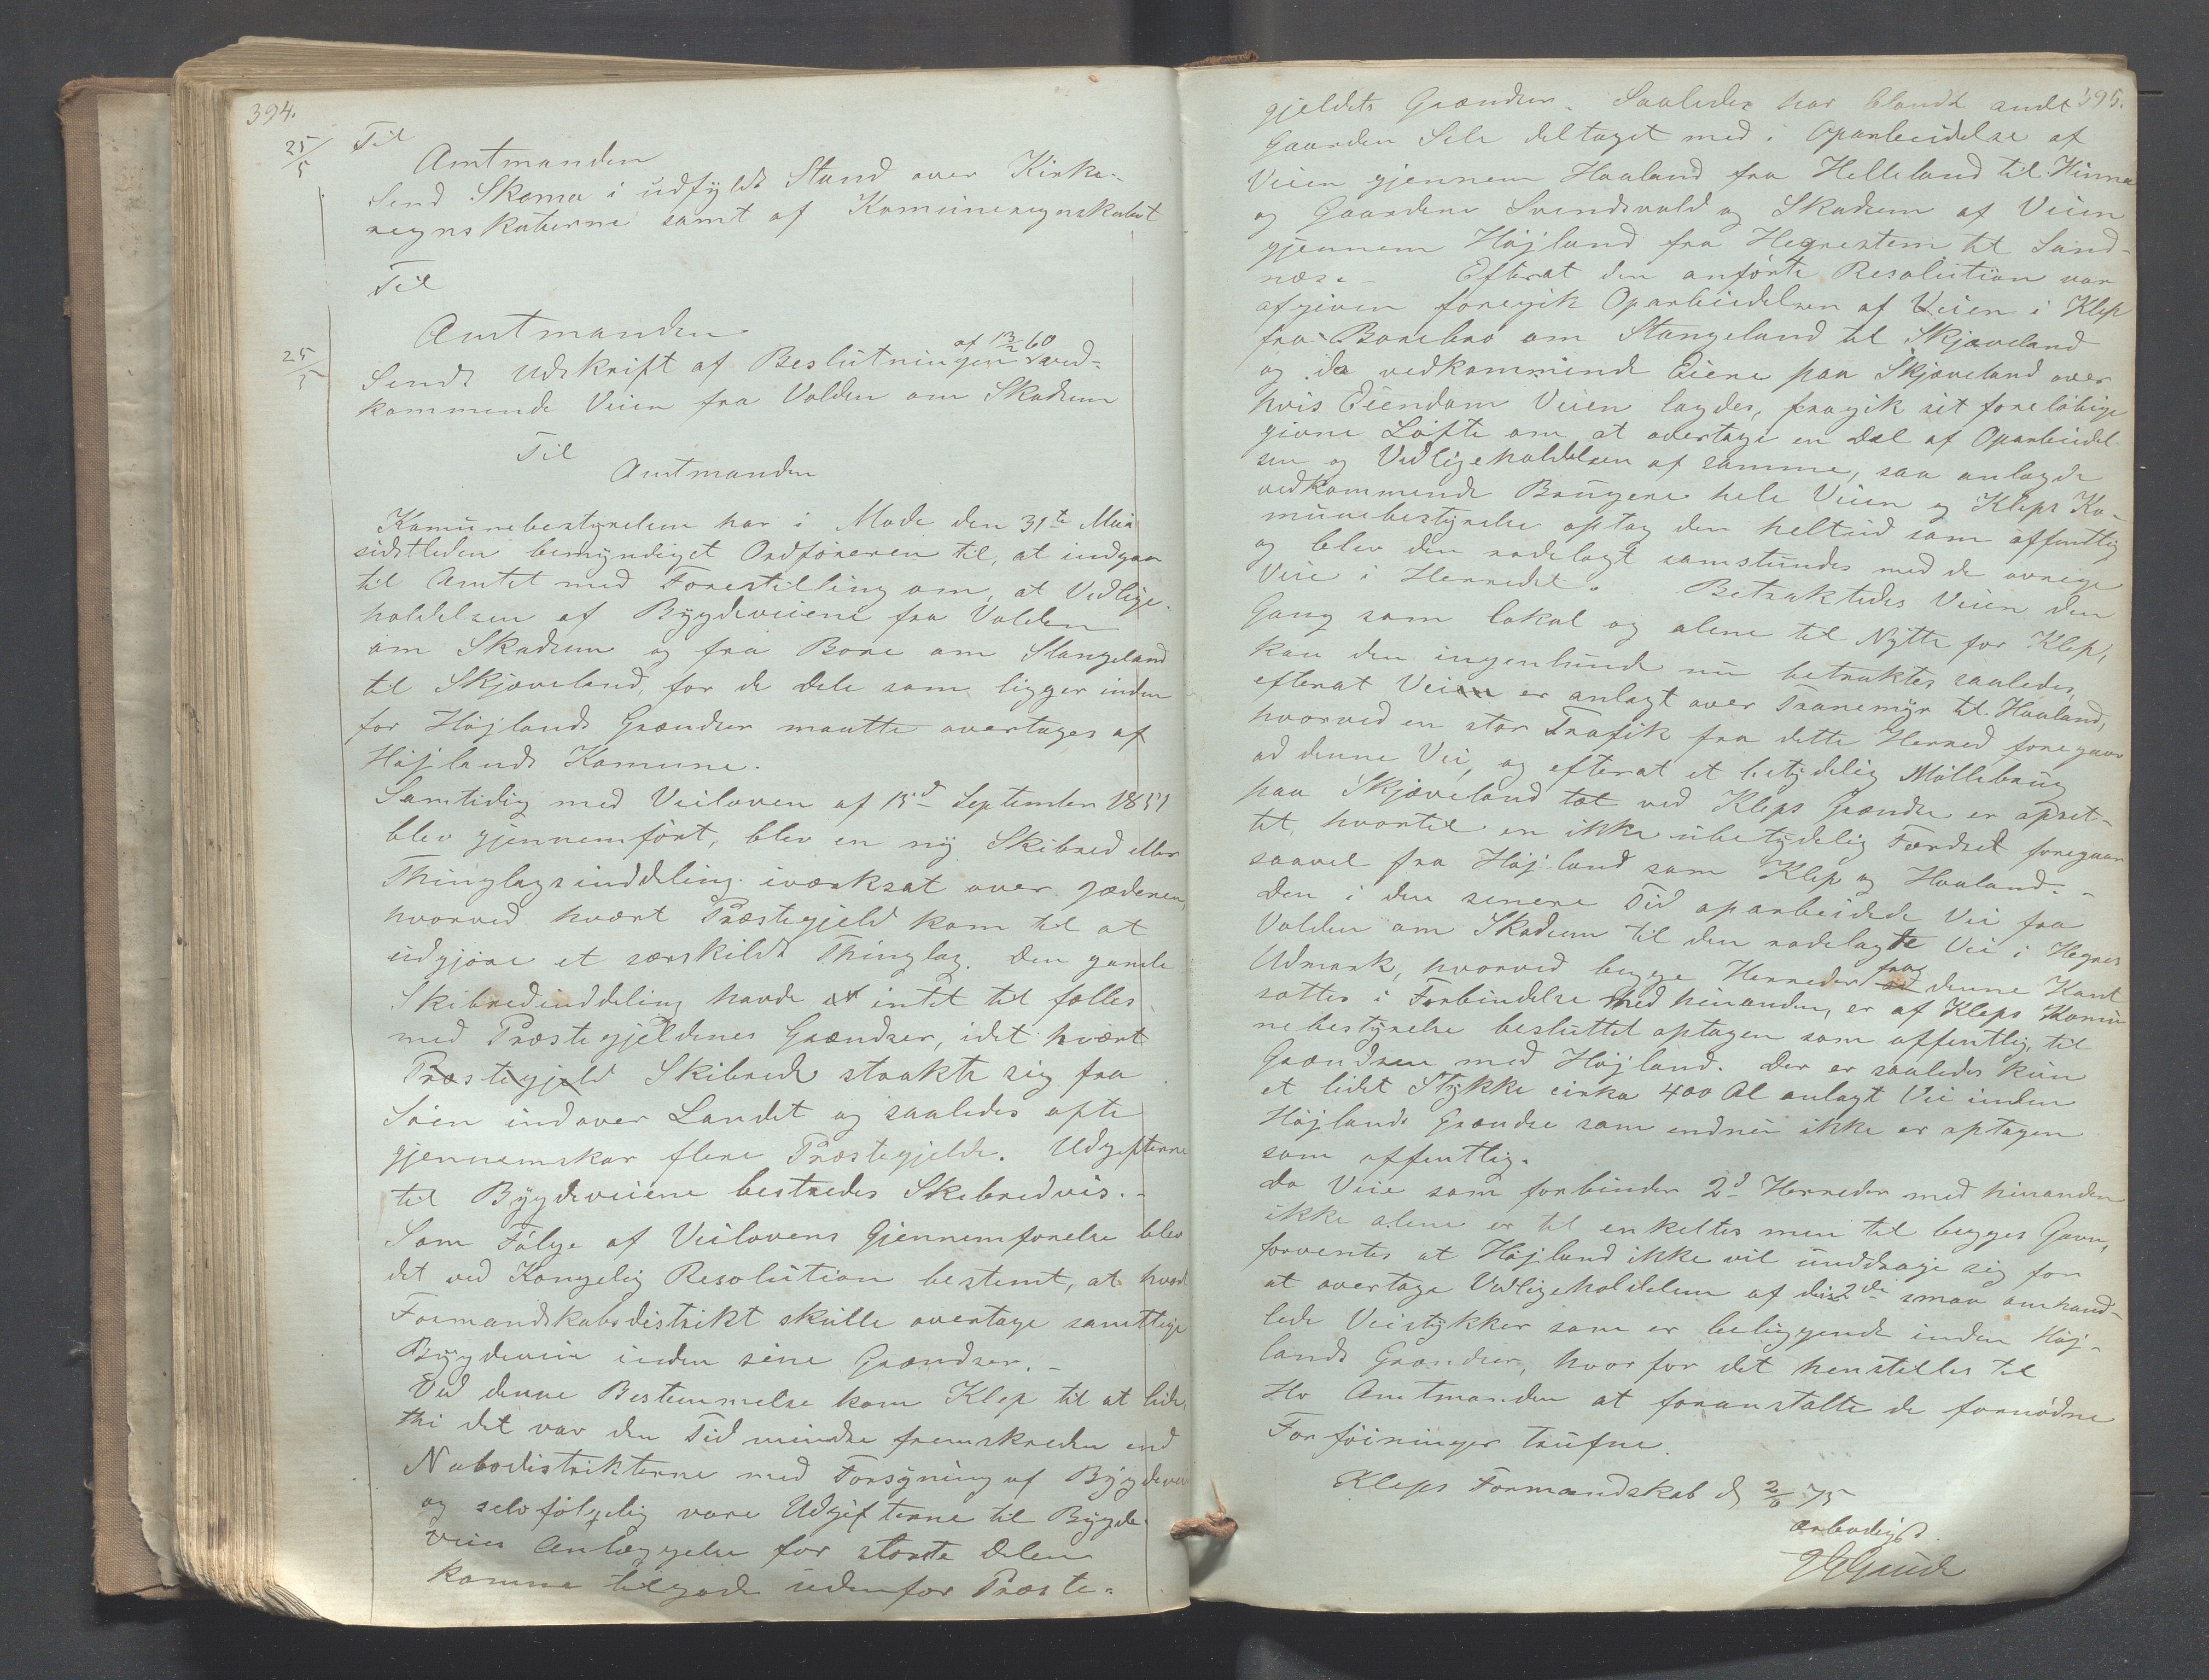 394.
25/5 Til
Amtmanden
Send Skema i udfyldt Stand over Kirke-
regnskaberne samt af Komuneregnskabet
Til
Amtmanden
25/5 Sendt Udskrift af Beslutningen af 13/2 60 ved-
kommende Veien fra Volden om Skadsem
Til
Amtmanden
Komunebestyrelsen har i Møde den 31te Mai
sidstleden bemyndiget Ordføreren til, at indgaa
til Amtet med Forestilling om, at Vedlige-
holdelsen af Bygdeveiene fra Volden
om Skadsem og fra Bore om Stangeland
til Skjæveland, for de Dele som ligger inden
for Højlands Grændser maatte overtages af
Højlands Komune.
Samtidig med Veiloven af 15d September 1851
blev gjennemført, blev en ny Skibred eller
Thinglagsinddeling iværksat over Jæderen,
hvorved hvært Præstegjeld kom til at
udgjøre et særskildt Thinglag. Den gamle
Skibredinddeling havde at intet til fælles
med Præstegjeldenes Grændser, idet hvært
Præstegjeld Skibrede strakte sig fra
Søen indover Landet og saaledes ofte
gjennemskar flere Præstegjelde. Udgifterne
til Bygdeveiene bestredes Skibredvis.-
Som Følge af Veilovens Gjennemførelse blev
det ved Kongelig Resolution bestemt, at hvært
Formandskabsdistrikt skulle overtage samtlige
Bygdeveie inden sine Grændser.-
Ved denne Bestemmelse kom Klep til at lide,
thi det var den Tid mindre fremskreden end
Nabodistrikterne med Forsyning af Bygdeveie
og selvfølgelig vare Udgifterne til Bygde-
veies Anlæggelse for største Delen
komne tilgode udenfor Præste-
395.
gjeldets Grændser. Saaledes har blandt andt
Gaarden Sele deltaget med i Oparbeidelse af
Veien gjennem Haaland fra Helleland til Hinna
og Gaardene Svendsvold og Skadsem af Veien
gjennem Højland fra Hegrestem til Sand-
næs.- Efterat den anførte Resolution var
afgiven foregik Oparbeidelsen af Veien i Klep
fra Borebro om Stangeland til Skjæveland
og da vedkommende Eiere paa Skjæveland over
hvis Eiendom Veien lagdes, fragik sit foreløbige
givne Løfte om at overtage en Del af Oparbeidel-
sen og Vedligeholdelsen af samme, saa anlagde
vedkommende Brugere hele Veien og Kleps Ko-
munebestyrelse optog den heltud som offentlig
og blev den rodelagt samstundes med de øvrige
Veie i Herredet. Betraktedes Veien den
Gang som lokal og alene til Nytte for Klep,
kan den ingenlunde nu betraktes saaledes,
efterat Veien er anlagt over Tranemyr til Haaland,
hvorved en stor Trafik fra dette Herred foregaar
ad denne Vei, og efterat et betydelig Møllebrug
paa Skjæveland tæt ved Kleps Grændse er opsat-
tet hvortil en ikke ubetydelig Færdsel foregaar
saavel fra Højland som Klep og Haaland.-
Den i den senere Tid oparbeidede Vei fra
Volden om Skadsem til den rodelagte Vei i Hegres
Udmark, hvorved begge Herreder fra denne Kant
sættes i Forbindelse med hinanden, er af Kleps Komu-
nebestyrelse besluttet optagen som offentlig, til
Grændsen med Højland. Der er saaledes kun
et lidet Stykke cirka 400 Al anlagt Vei inden
Højlands Grændse som endnu ikke er optagen
som offentlig.
Da Veie som forbinder 2d Herreder med hinanden
ikke alene er til enkeltes men til begges Gavn,
forventes at Højland ikke vil unddrage sig for
at overtage Vedligeholdelsen af disse 2de smaa omhand-
lede Veistykker som er beliggende inden Høj-
lands Grændser, hvorfor det henstilles til
Hr Amtmanden at foranstalte de fornødne
Forføininger trufne.
Kleps Formandskab d 2/6 75
ærbødigst.